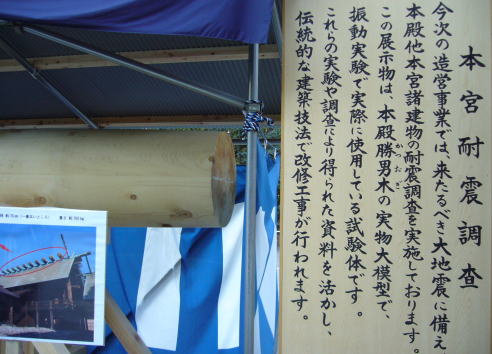 本宮耐震調査
今次の造営事業では、来たるべき大地震に備え、
本殿他本宮諸建物の耐震調査を実施しております。
この展示物は、本殿勝男木の実物大模型で、
かつおぎ
振動実験で実際に使用している試験体です。
これらの実験や調査により得られた資料を活かし、
伝統的な建築技法で改修工事が行われます。